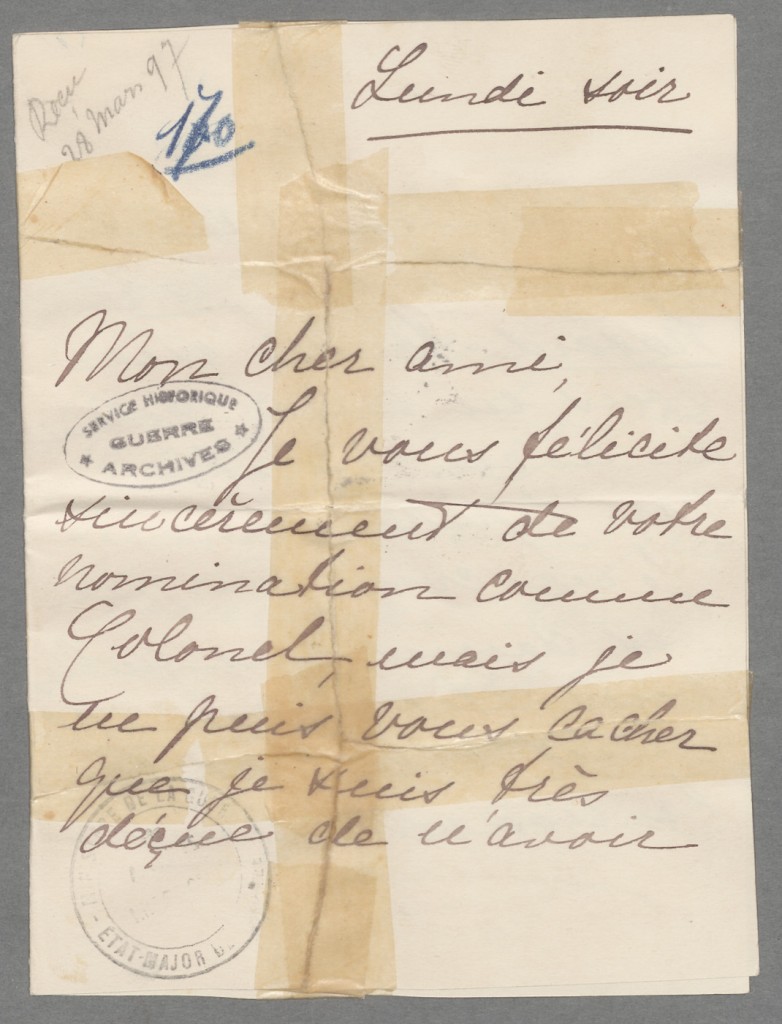 Reçu
28 mars 97
170
Lundi soir
Mon cher ami,
SERVICE HISTORIQUE
GUERRE
ARCHIVES
Je vous félicite
sincèrement de votre
nomination comme
Colonel, mais je
ne puis vous cacher
que je suis très
déçue de n'avoir
DE LA GUERRE
ETAT-MAJOR